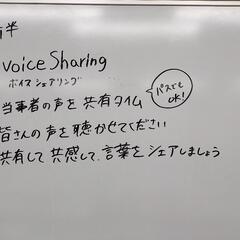 前半
voice Sharing
ボイス シェアリング
当事者の声を共有タイム
パスでもOK!
皆さんの声を聴かせてください
共有して共感して、言葉をシェアしましょう